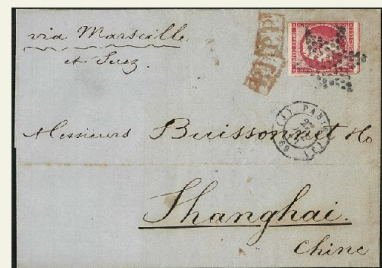 via Marseille
et Suez
Messieurs Buissonnet &
Shanghai.
Chine
PARIS